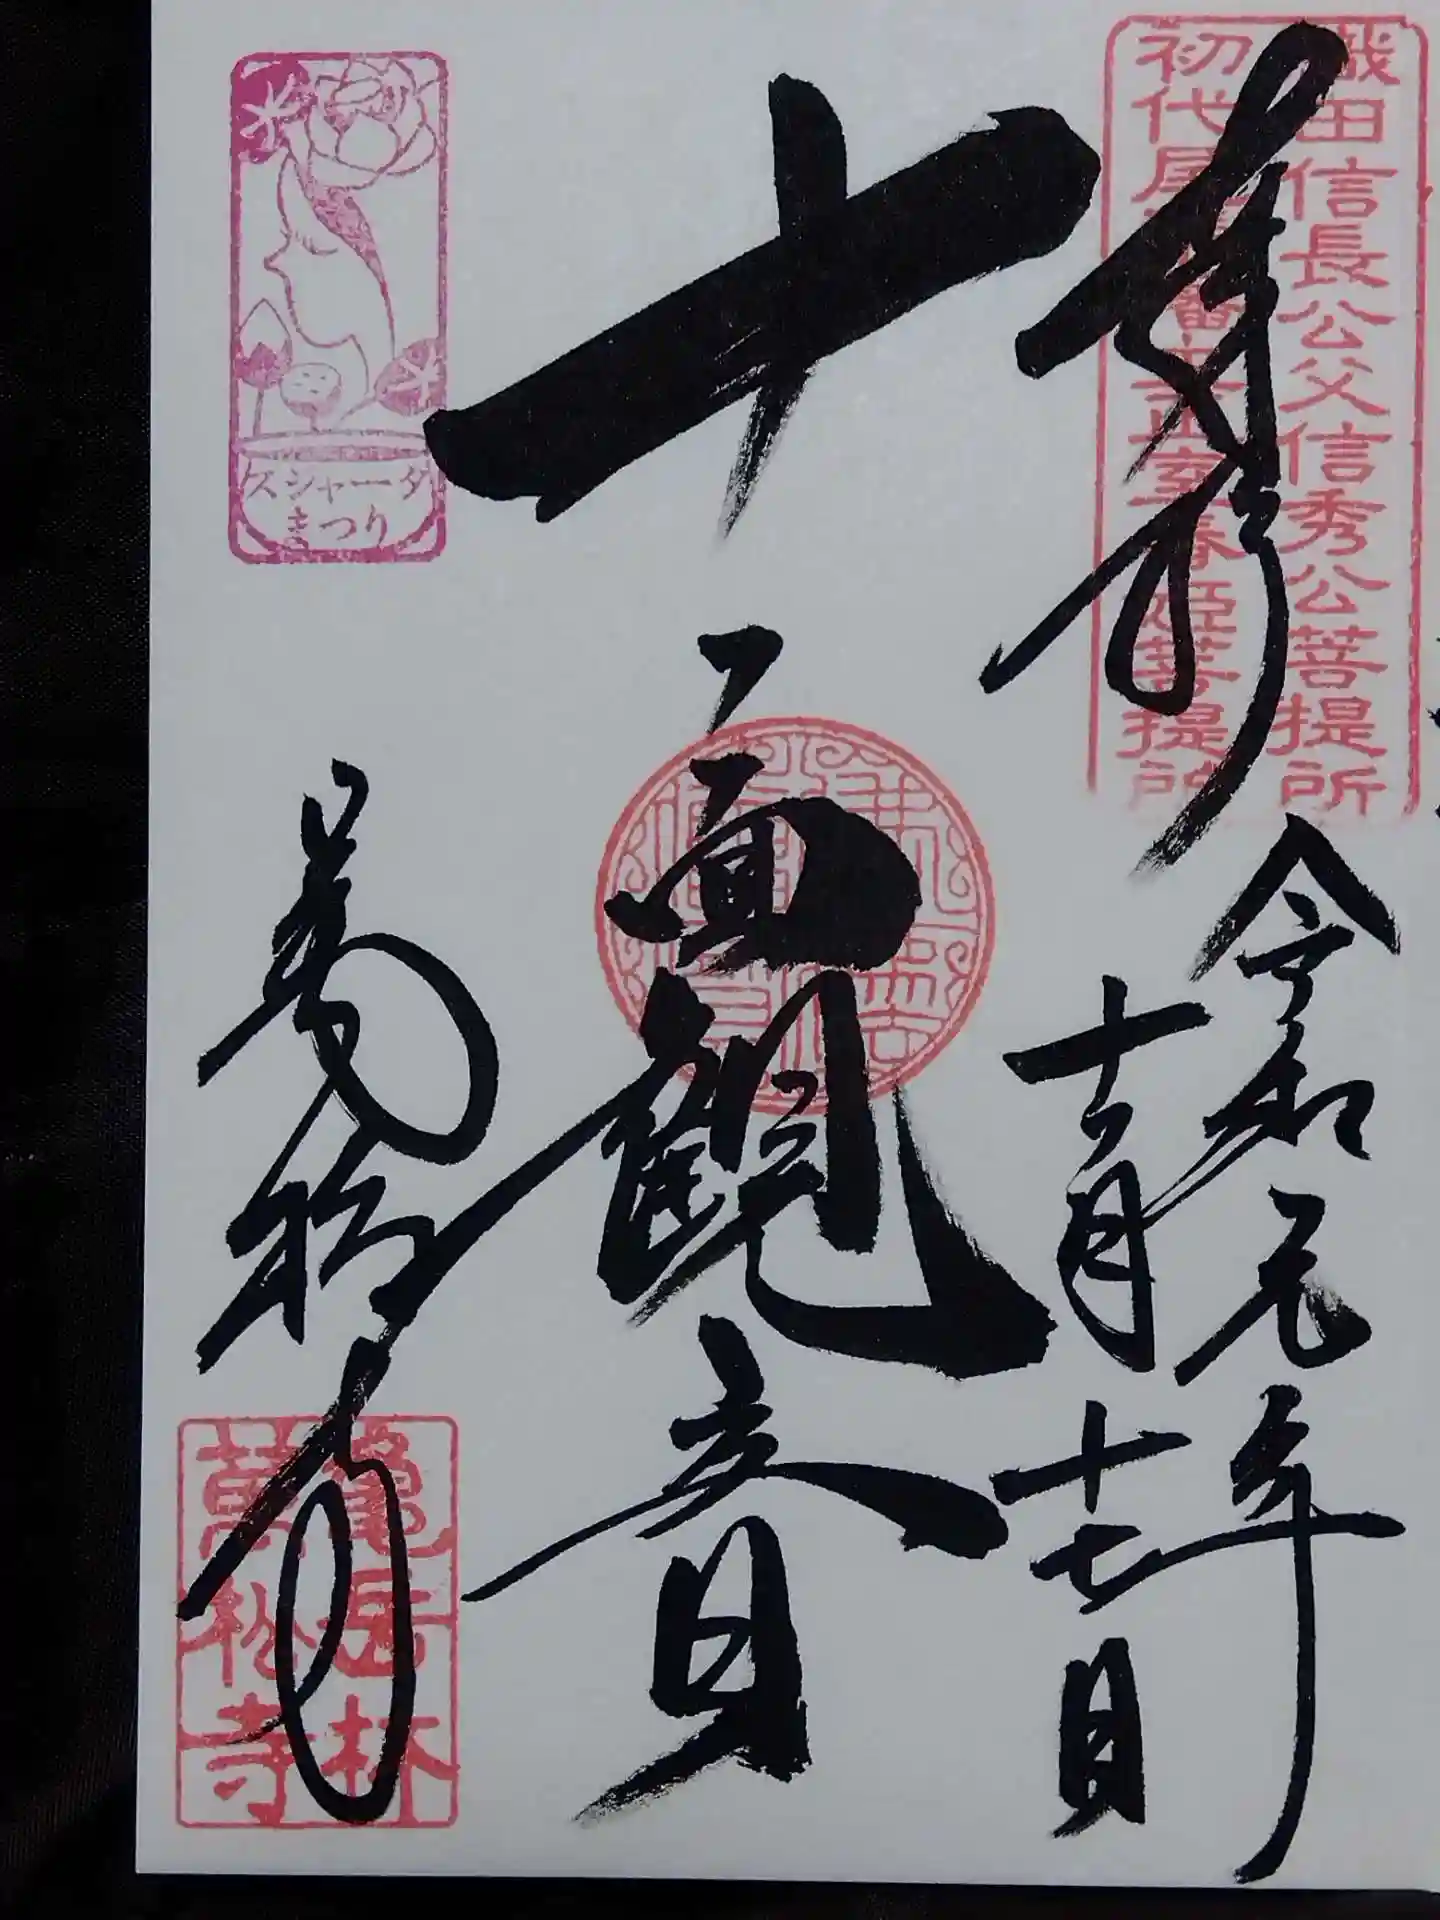 織田信長公父信秀公菩提所
初代尾張藩主正室春姫菩提所
奉拝
令和元年
十一月十七日
十一面観音
萬松寺
亀岳林
萬松寺
クシャーダ
まつり